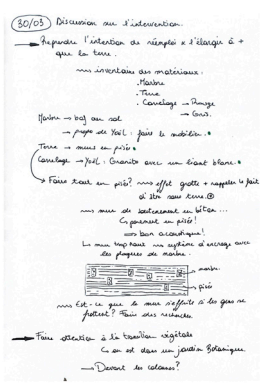 30/03 Discussion sur l'intervention.
→ Reprendre l'intention de réemploi x l'élargir à +
que la terre.
⟿ inventaire des matériaux.
. Marbre
. Terre
. Carrelage → Rouge
→ Gris.
Marbre → baf au sol
→ propo de Yaël : faire le mobilier.
Terre → murs en pisés
Carrelage → Yaël : Granito avec un liant blanc.
→ Faire tout en pisé? ⟿ effet grotte + rappeler le fait
d'être sous terre.
⟿ mur de soutènement en béton...
↳ parement en pisé!
⟹ bon acoustique!
↳ mur trop haut ⟿ système d'ancrage avec
les plaques de marbre.
→ marbre.
→ pisés
⟿ Est-ce que le mur s'effrite si les gens se
frottent? Faire des recherches.
→ Faire attention à la transition végétale
↳ on est dans un jardin Botanique.
→ Devant les colonnes?